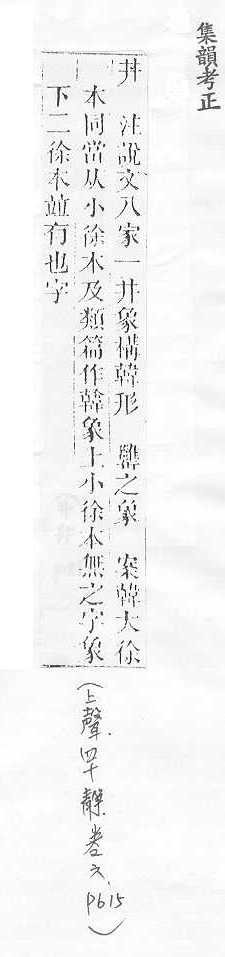 集韻考正
丼 注說文八家一井象構韓形 𦉥之象 案韓大徐
本同當从小徐本及類篇作韓象上小徐本無之字象
下二徐本竝有也字
(上聲四十靜卷六 p615)